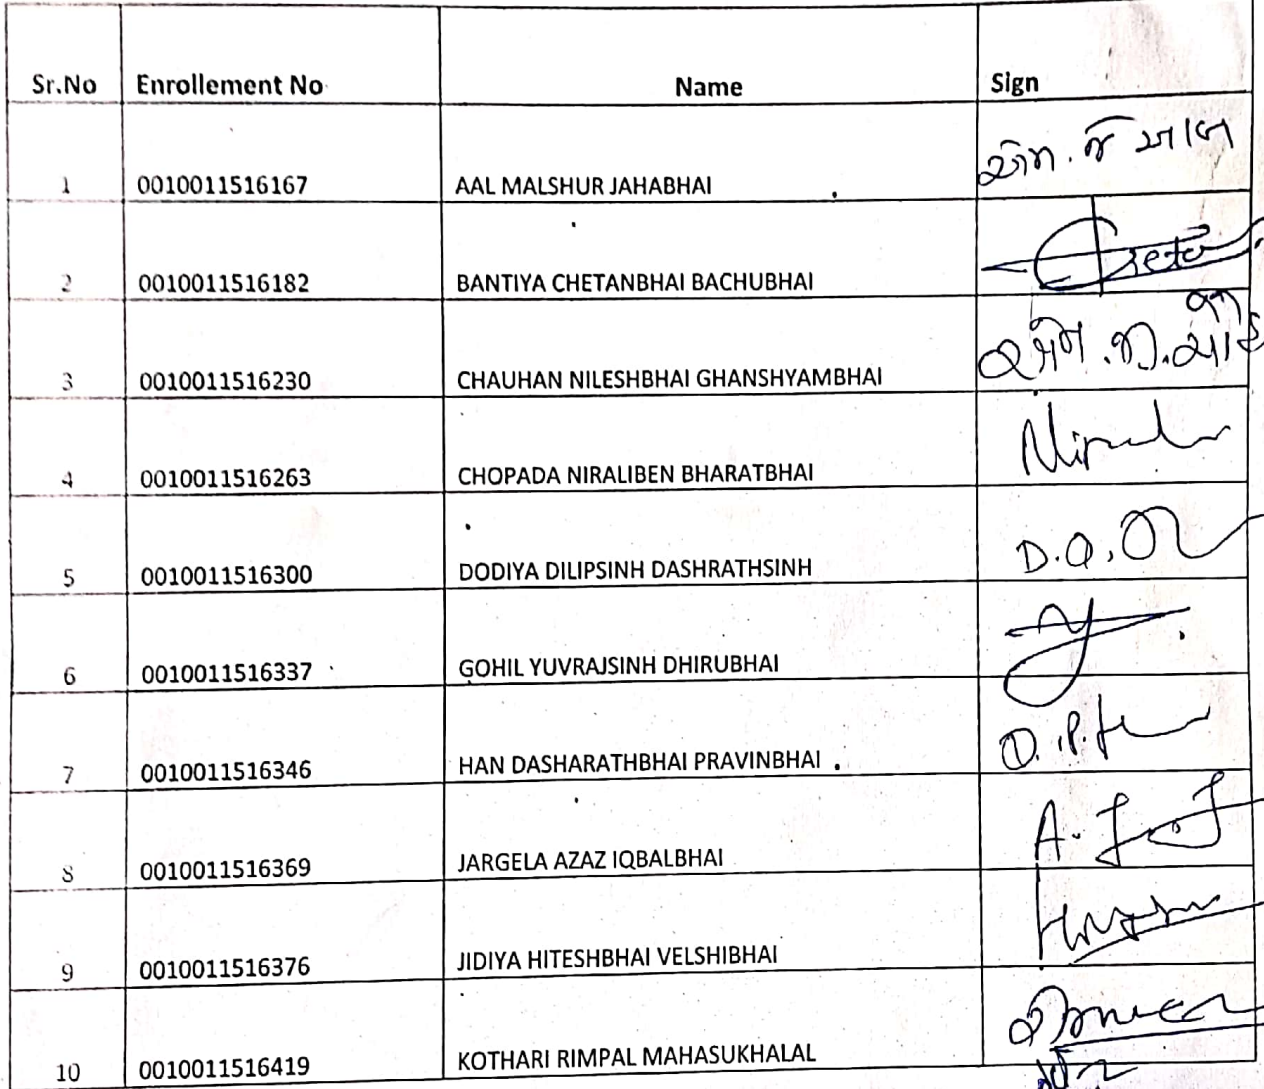 Sr.No Enrollement No Name Sign
1 0010011516167 AAL MALSHUR JAHABHAI
2 0010011516182 BANTIYA CHETANBHAI BACHUBHAI
3 0010011516230 CHAUHAN NILESHBHAI GHANSHYAMBHAI
4 0010011516263 CHOPADA NIRALIBEN BHARATBHAI
5 0010011516300 DODIYA DILIPSINH DASHRATHSINH D.D.
6 0010011516337 GOHIL YUVRAJSINH DHIRUBHAI
7 0010011516346 HAN DASHARATHBHAI PRAVINBHAI D.P.
8 0010011516369 JARGELA AZAZ IQBALBHAI A.
9 0010011516376 JIDIYA HITESHBHAI VELSHIBHAI
10 0010011516419 KOTHARI RIMPAL MAHASUKHALAL